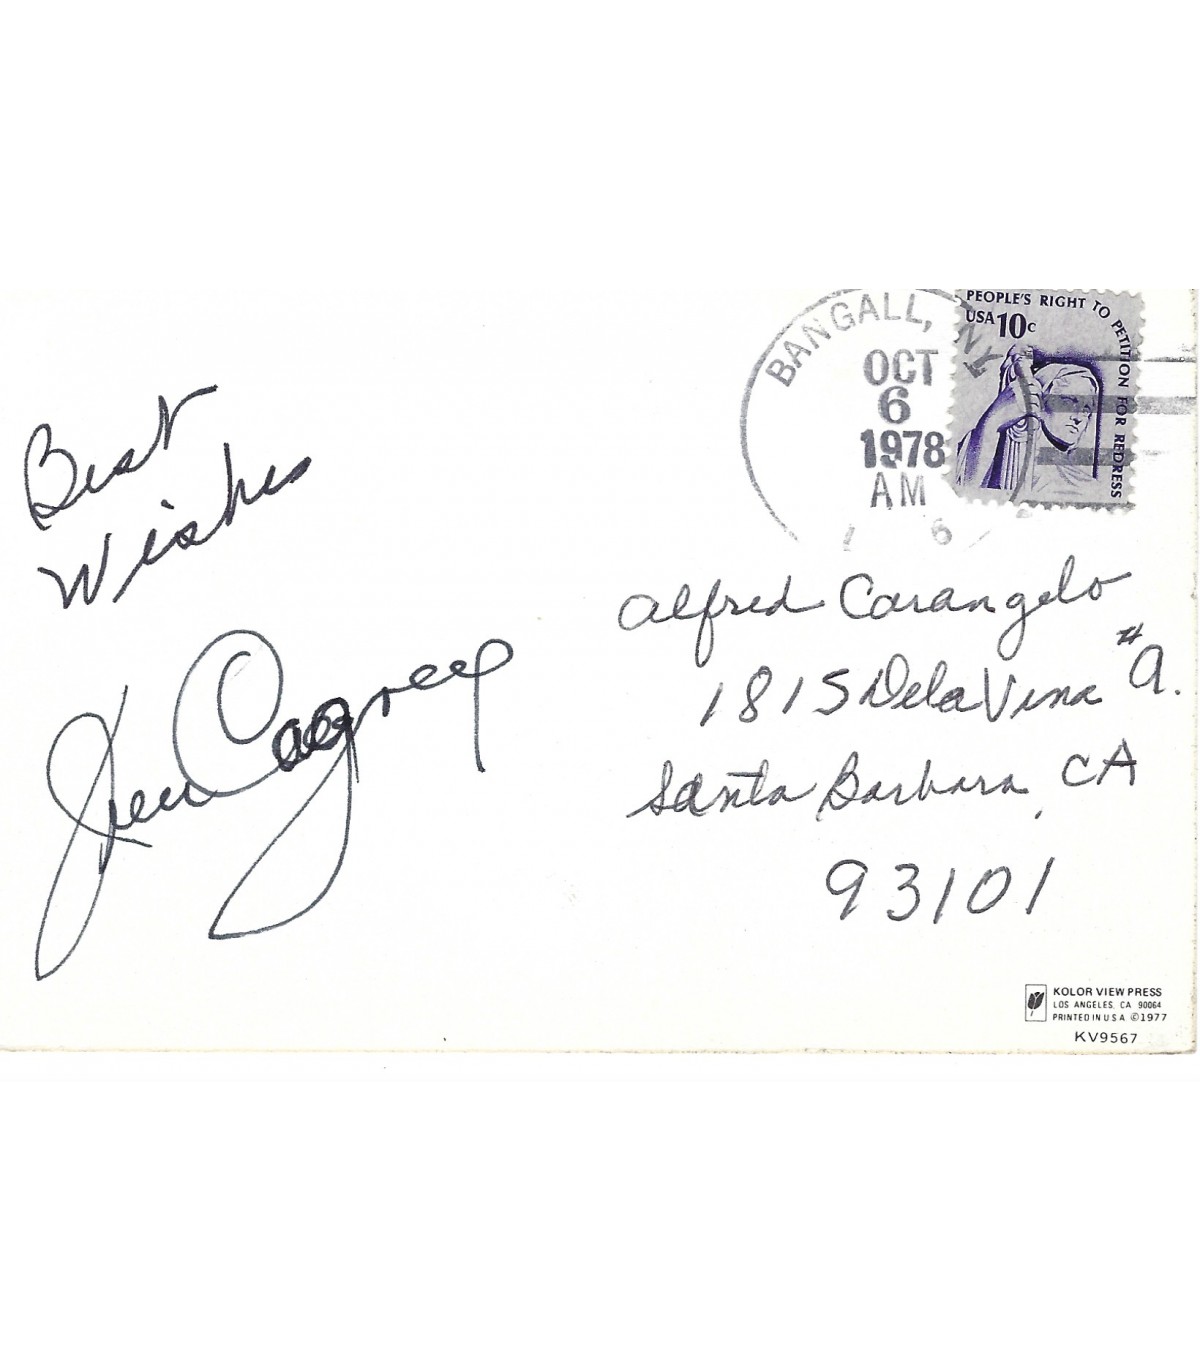 Best
Wishes
Jim Cagney
BANGALL, NY
OCT
6
1978
AM
PEOPLE'S RIGHT TO PETITION FOR REDRESS
USA 10c
Alfred Carangelo
1815 De la Vina #9.
Santa Barbara, CA
93101
KOLOR VIEW PRESS
LOS ANGELES, CA 90064
PRINTED IN U S A ©1977
KV9567